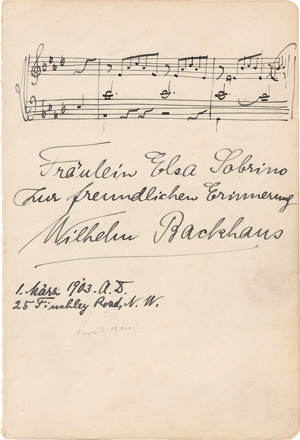 Fräulein Elsa Sobrino
Zur freundlichen Erinnerung
Wilhelm Backhaus
1. März 1903. A.D.
25 Finchley Road, N.W.